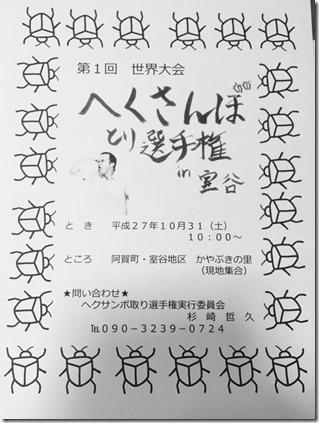 第1回　世界大会
へくさんぼ
とり選手権
in 室谷
と　き　　平成27年10月31（土）
10：00～
ところ　　阿賀町・室谷地区　かやぶきの里
（現地集合）
★問い合わせ★
ヘクサンボ取り選手権実行委員会
杉　崎　哲　久
℡090－3239－0724